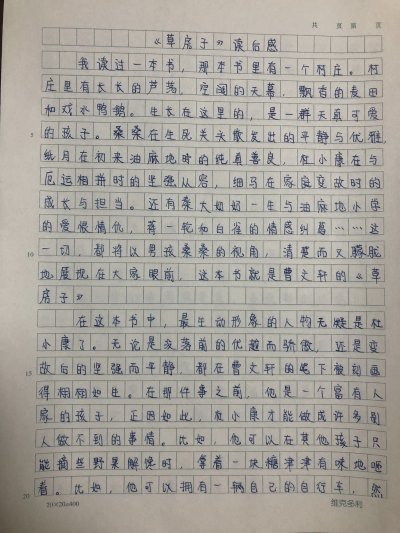 共 页 第 页
《草房子》读后感
我读过一本书，那本书里有一个村庄。村
庄里有长长的芦荡，空阔的天幕，飘香的麦田
和戏水鸭鹅。生长在这里的，是一群天真可爱
5 的孩子。桑桑在生死关头散发出的平静与优雅，
纸月在初来油麻地时的纯真善良，杜小康在与
厄运相拼时的坚强从容，细马在家庭变故时的
成长与担当。还有秦大奶奶一生与油麻地小学
的爱恨情仇，蒋一轮和白雀的情感纠葛……这
10 一切，都将以男孩桑桑的视角，清楚而又朦胧
地展现在大家眼前，这本书就是曹文轩的《草
房子》
在这本书中，最生动形象的人物无疑是杜
小康了。无论是没落前的优越而骄傲，还是变
15 故后的坚强而平静，都在曹文轩的笔下被刻画
得栩栩如生。在那件事之前，他是一个富有人
家的孩子，正因如此，杜小康才能做成许多别
人做不到的事情。比如，他可以在其他孩子只
能摘些野果解馋时，拿着一块糖津津有味地嚼
20 着。比如，他可以拥有一辆自己的自行车，然
20×20=400 维克多利